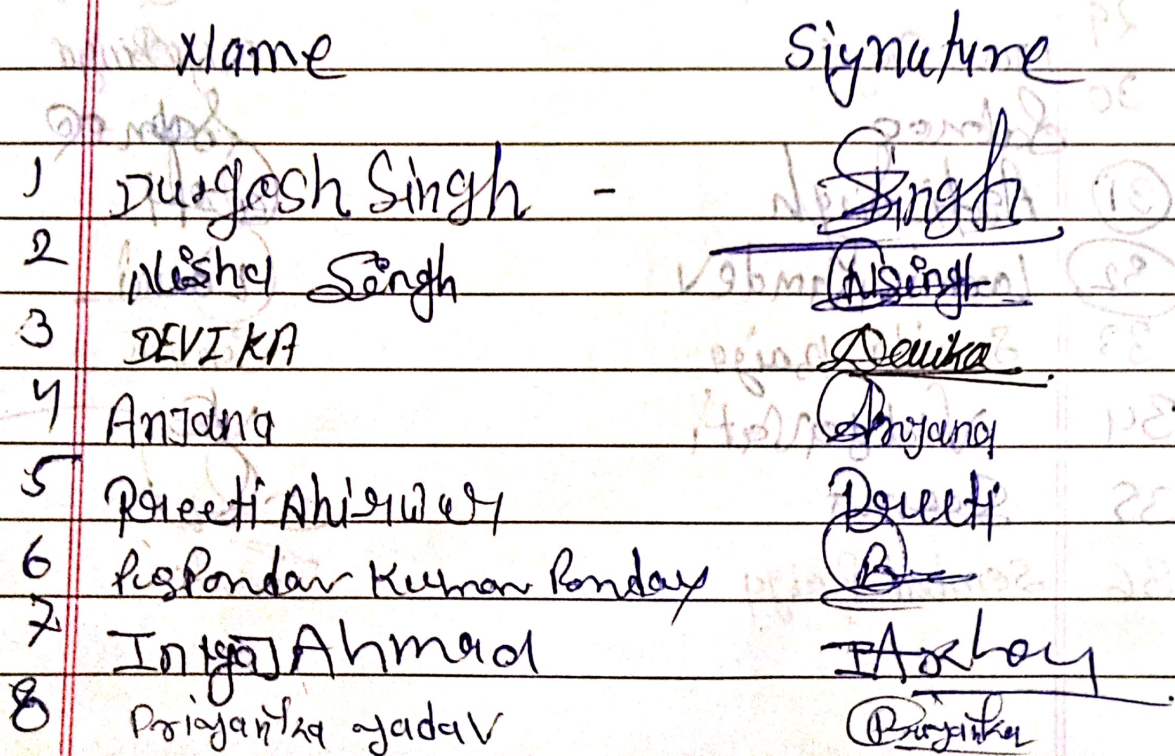 Name Signature
1 Durgesh Singh - Singh
2 Nisha Singh NSingh
3 DEVIKA Devika
4 Anjana Anjana
5 Preeti Ahirwar Preeti
6 Kumar Panday
7 Ahmad
8 Priyanka yadav Priyanka